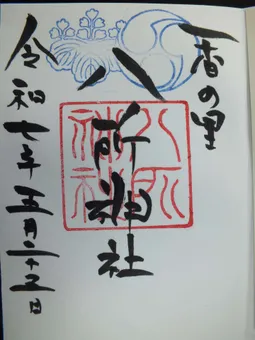 一香の里
八所神社
八所神社
令和七年五月二十五日